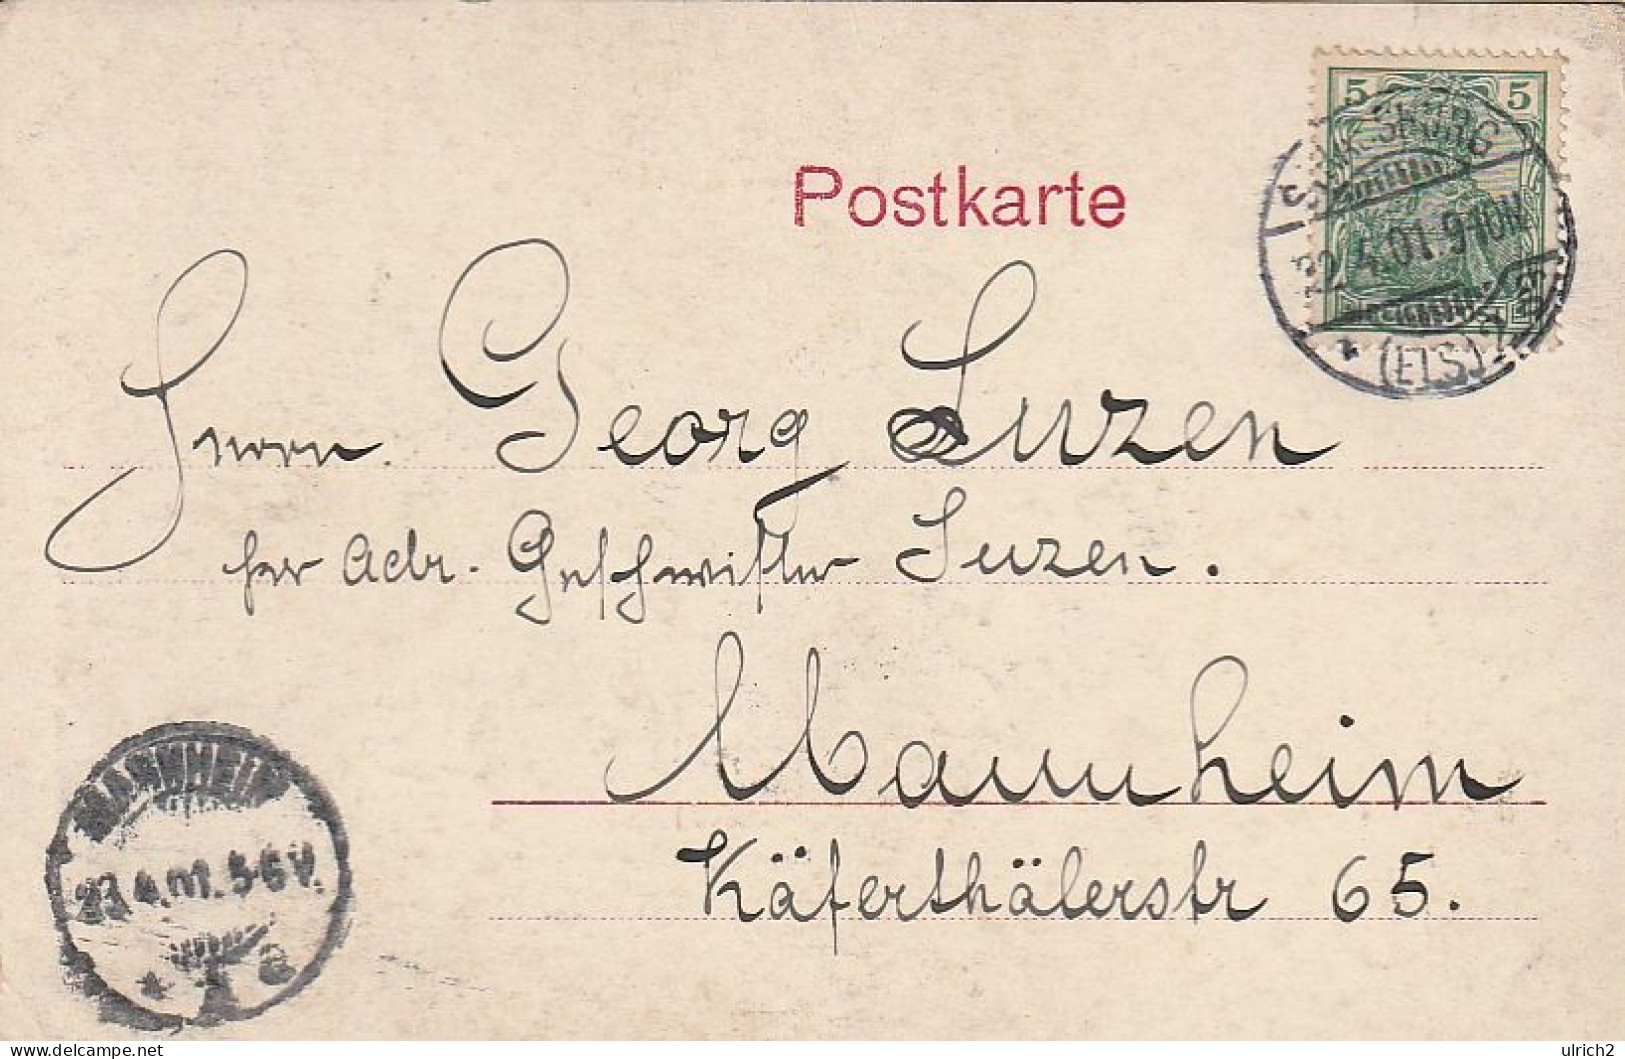 Postkarte
5 5
STRASSBURG
22.4.01.9-10N.
(ELS.)
Herrn Georg Luzen
per Adr. Geschwister Luzen.
Mannheim
Käferthälerstr 65.
MANNHEIM
23.4.01.5-6V.
* 1 a
ulrich2